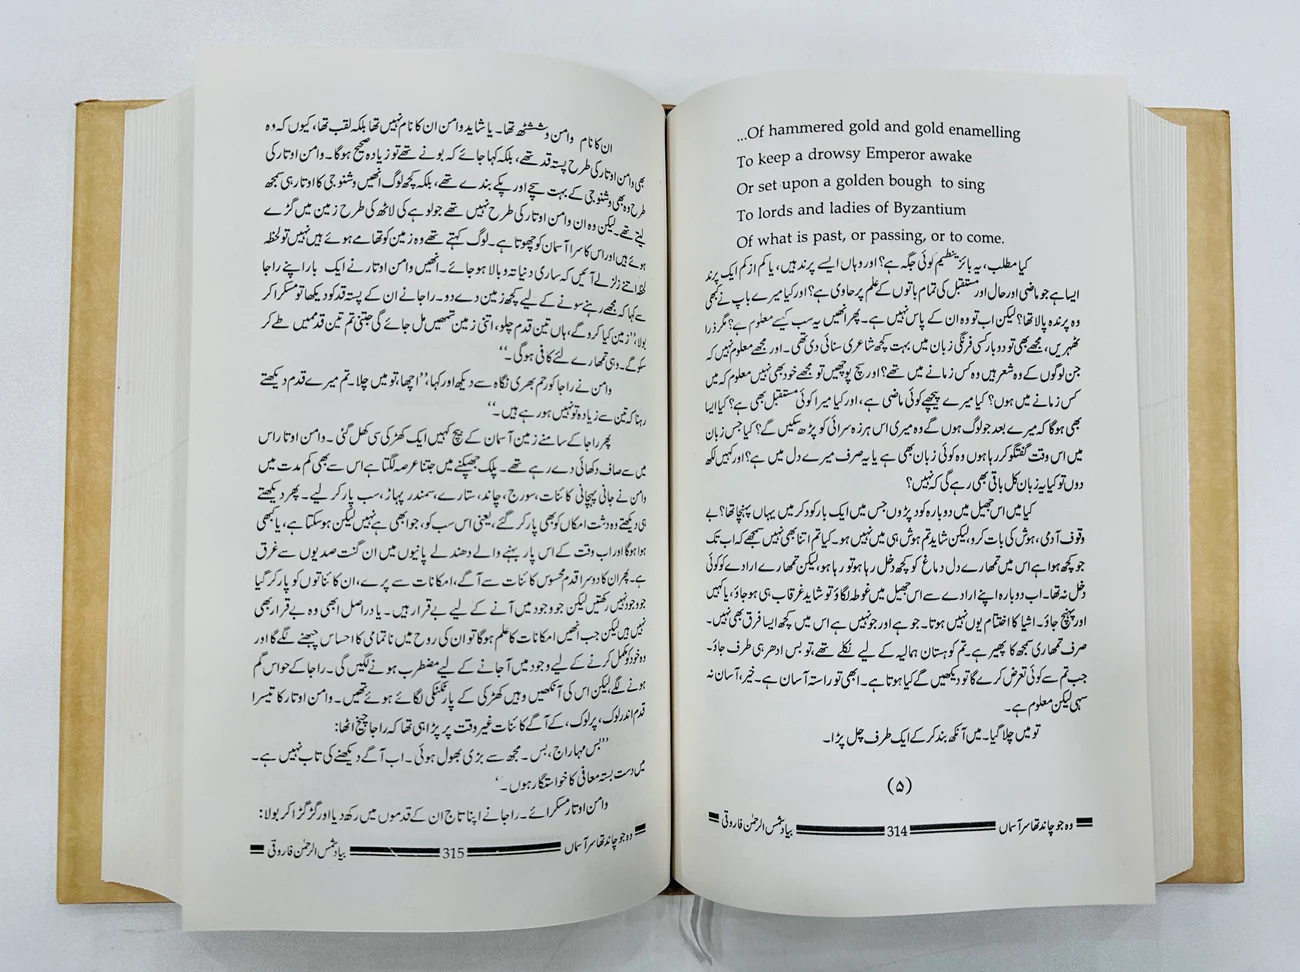 ...Of hammered gold and gold enamelling
To keep a drowsy Emperor awake
Or set upon a golden bough to sing
To lords and ladies of Byzantium
Of what is past, or passing, or to come.
کیا مطلب، یہ بائزینطیم کوئی جگہ ہے؟ اور وہاں ایسے پرند ہیں، یا کم از کم ایک پرند
ایسا ہے جو ماضی اور حال اور مستقبل کی تمام باتوں کے علم پر حاوی ہے؟ اور کیا میرے باپ نے کبھی
وہ پرندہ پالا تھا؟ لیکن اب تو وہ ان کے پاس نہیں ہے۔ پھر انھیں یہ سب کیسے معلوم ہے؟ مگر ذرا
ٹھہریں، مجھے بھی تو دوبار کسی فرنگی زبان میں بہت کچھ شاعری سنائی دی تھی۔ اور مجھے معلوم نہیں کہ
جن لوگوں کے وہ شعر ہیں وہ کس زمانے میں تھے؟ اور سچ پوچھیں تو مجھے خود بھی نہیں معلوم کہ میں
کس زمانے میں ہوں؟ کیا میرے پیچھے کوئی ماضی ہے، اور کیا میرا کوئی مستقبل بھی ہے؟ کیا ایسا
بھی ہوگا کہ میرے بعد جو لوگ ہوں گے وہ میری اس ہرزہ سرائی کو پڑھ سکیں گے؟ کیا جس زبان
میں اس وقت گفتگو کر رہا ہوں وہ کوئی زبان بھی ہے یا یہ صرف میرے دل میں ہے؟ اور کہیں لکھ
دوں تو کیا یہ زبان کل باقی بھی رہے گی کہ نہیں؟
کیا میں اس جھیل میں دوبارہ کود پڑوں جس میں ایک بار کود کر میں یہاں پہنچا تھا؟ بے
وقوف آدمی، ہوش کی بات کرو، لیکن شاید تم ہوش ہی میں نہیں ہو۔ کیا تم اتنا بھی نہیں سمجھے کہ اب تک
جو کچھ ہوا ہے اس میں تمھارے دل دماغ کو کچھ دخل رہا ہو تو رہا ہو، لیکن تمھارے ارادے کو کوئی
دخل نہ تھا۔ اب دوبارہ اپنے ارادے سے اس جھیل میں غوطہ لگاؤ تو شاید غرقاب ہی ہو جاؤ، یا کہیں
اور پہنچ جاؤ۔ اشیا کا اختتام یوں نہیں ہوتا۔ جو ہے اور جو نہیں ہے اس میں کچھ ایسا فرق بھی نہیں۔
صرف تمھاری سمجھ کا پھیر ہے۔ تم کوہستان ہمالیہ کے لیے نکلے تھے، تو بس ادھر ہی طرف جاؤ۔
جب تم سے کوئی تعرض کرے گا تو دیکھیں گے کیا ہوتا ہے۔ ابھی تو راستہ آسان ہے۔ خیر، آسان نہ
سہی لیکن معلوم ہے۔
تو میں چلا گیا۔ میں آنکھ بند کر کے ایک طرف چل پڑا۔
(۵)
وہ جو چاند تھا سر آسماں 314 بیاد شمس الرحمٰن فاروقی
ان کا نام وامن وششٹھ تھا۔ یا شاید وامن ان کا نام نہیں تھا بلکہ لقب تھا، کیوں کہ وہ
بھی وامن اوتار کی طرح پستہ قد تھے، بلکہ کہا جائے کہ بونے تھے تو زیادہ صحیح ہوگا۔ وامن اوتار کی
طرح وہ بھی وشنو جی کے بہت سچے اور پکے بندے تھے، بلکہ کچھ لوگ انھیں وشنو جی کا اوتار ہی سمجھ
لیتے تھے۔ لیکن وہ ان وامن اوتار کی طرح نہیں تھے جو لوہے کی لاٹھ کی طرح زمین میں گڑے
ہوئے ہیں اور اس کا سرا آسمان کو چھوتا ہے۔ لوگ کہتے تھے وہ زمین کو تھامے ہوئے ہیں نہیں تو لحظہ
لحظہ اتنے زلزلے آئیں کہ ساری دنیا تہ و بالا ہو جائے۔ انھیں وامن اوتار نے ایک بار اپنے راجا
سے کہا کہ مجھے رہنے سونے کے لیے کچھ زمین دے دو۔ راجا نے ان کے پستہ قد کو دیکھا تو مسکرا کر
بولا، ’’زمین کیا کرو گے، ہاں تین قدم چلو، اتنی زمین تمھیں مل جائے گی جتنی تم تین قدم میں طے کر
سکو گے۔ وہی تمھارے لئے کافی ہوگی۔‘‘
وامن نے راجا کو رحم بھری نگاہ سے دیکھ اور کہا، ’’اچھا، تو میں چلا۔ تم میرے قدم دیکھتے
رہنا کہ تین سے زیادہ تو نہیں ہو رہے ہیں۔‘‘
پھر راجا کے سامنے زمین آسمان کے بیچ کہیں ایک کھڑکی سی کھل گئی۔ وامن اوتار اس
میں سے صاف دکھائی دے رہے تھے۔ پلک جھپکنے میں جتنا عرصہ لگتا ہے اس سے بھی کم مدت میں
وامن نے جانی پہچانی کائنات، سورج، چاند، ستارے، سمندر پہاڑ، سب پار کر لیے۔ پھر دیکھتے
ہی دیکھتے وہ دشت امکاں کو بھی پار کر گئے، یعنی اس سب کو، جو ابھی ہے نہیں لیکن ہو سکتا ہے، یا کبھی
ہوا ہوگا اور اب وقت کے اس پار بہنے والے دھندلے پانیوں میں ان گنت صدیوں سے غرق
ہے۔ پھر ان کا دوسرا قدم محسوس کائنات سے آگے، امکانات سے پرے، ان کائناتوں کو پار کر گیا
جو وجود نہیں رکھتیں لیکن جو وجود میں آنے کے لیے بے قرار ہیں۔ یا دراصل ابھی وہ بے قرار بھی
نہیں ہیں لیکن جب انھیں امکانات کا علم ہوگا تو ان کی روح میں ناتمامی کا احساس چبھنے لگے گا اور
وہ خود کو مکمل کرنے کے لیے وجود میں آ جانے کے لیے مضطرب ہونے لگیں گی۔ راجا کے حواس گم
ہونے لگے، لیکن اس کی آنکھیں وہیں کھڑکی کے پار ٹکٹکی لگائے ہوئے تھیں۔ وامن اوتار کا تیسرا
قدم اندر لوک، پر لوک، کے آگے کائنات غیر وقت پر پڑا ہی تھا کہ راجا چیخ اٹھا:
’’بس مہاراج، بس۔ مجھ سے بڑی بھول ہوئی۔ اب آگے دیکھنے کی تاب نہیں ہے۔
میں دست بستہ معافی کا خواستگار ہوں۔‘
وامن اوتار مسکرائے۔ راجا نے اپنا تاج ان کے قدموں میں رکھ دیا اور گڑگڑا کر بولا:
وہ جو چاند تھا سر آسماں 315 بیاد شمس الرحمٰن فاروقی